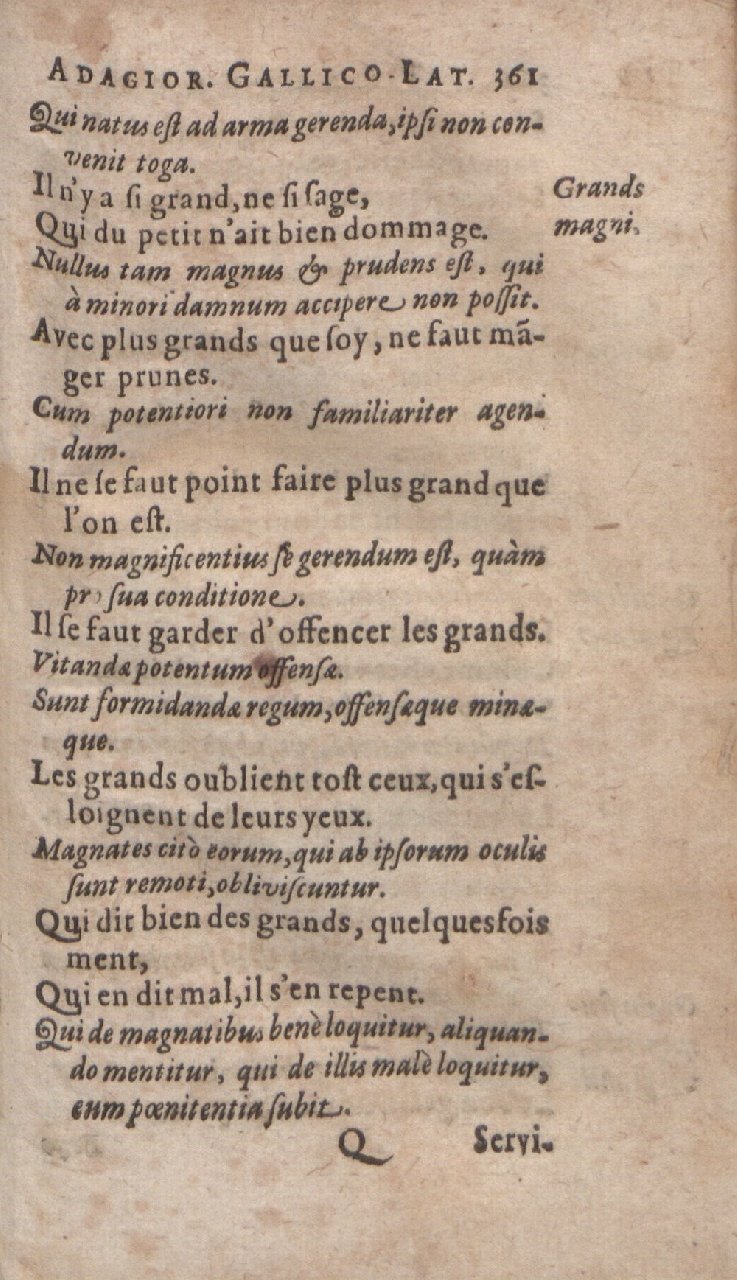 ADAGIOR. GALLICO-LAT. 361
Qui natus est ad arma gerenda, ipsi non con-
venit toga.
Il n'y a si grand, ne si sage,
Grands
Qui du petit n'ait bien dommage.
magni.
Nullus tam magnus & prudens est, qui
à minori damnum accipere non possit.
Avec plus grands que soy, ne faut mã-
ger prunes.
Cum potentiori non familiariter agen-
dum.
Il ne se faut point faire plus grand que
l'on est.
Non magnificentius se gerendum est, quàm
pro sua conditione.
Il se faut garder d'offencer les grands.
Vitandæ potentum offensæ.
Sunt formidandæ regum, offensæque minæ-
que.
Les grands oublient tost ceux, qui s'es-
loignent de leurs yeux.
Magnates citò eorum, qui ab ipsorum oculis
sunt remoti, obliviscuntur.
Qui dit bien des grands, quelquesfois
ment,
Qui en dit mal, il s'en repent.
Qui de magnatibus benè loquitur, aliquan-
do mentitur, qui de illis malè loquitur,
eum pœnitentia subit.
Q Servi-